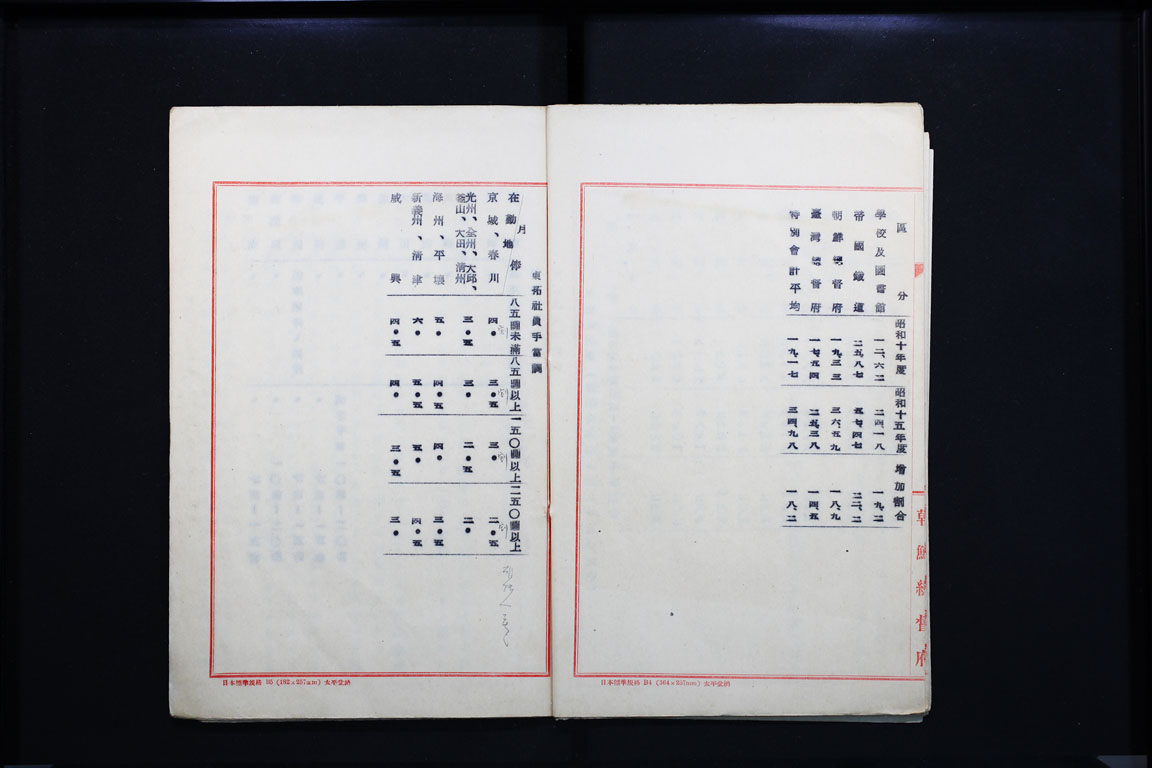 區分 昭和十年度 昭和十五年度 增加割合
學校及圖書館 一二、六二 二四、一八 一九、二
帝國鐵道 二五、八七 五七、四七 二二、二
朝鮮總督府 一九、三三 三六、五九 一八、九
臺灣總督府 一七、五四 二五、三八 一四、五
特別會計平均 一九、一七 三四、九八 一八、二
朝鮮總督府
日本標準規格 B4 (364×257mm) 太平堂納
東拓社員手當調
在勤地 月俸 八五圓未滿 八五圓以上 一五〇圓以上 二五〇圓以上
京城、春川 四• 三•五 三• 二•五
光州、全州、大邱、釜山、大田、淸州 三•五 三• 二•五 二•
海州、平壤 五• 四•五 四• 三•五
新義州、淸津 六• 五•五 五• 四•五
咸興 四•五 四• 三•五 三•
日本標準規格 B5 (182×257mm) 太平堂納